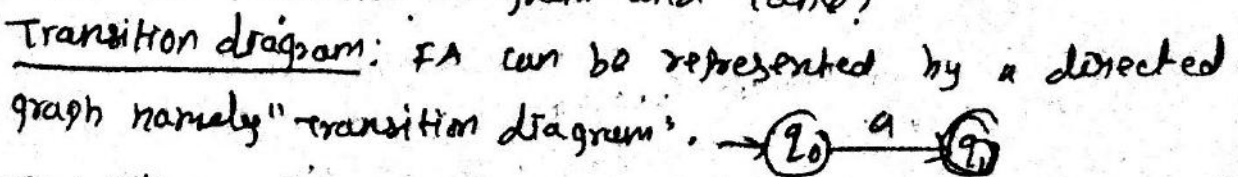 Transition diagram: FA can be represented by a directed
graph namely "transition diagram". → q0 a q1